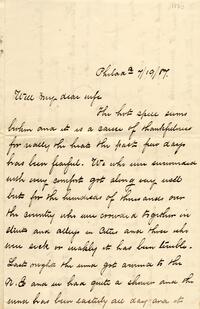 Philada 7/19/87.
Well my dear wife
The hot spell seems
broken and it is a cause of thankfulness
for really the heat the past few days
has been fearful. We who are surrounded
with every comfort got along very well
but for the hundreds of thousands over
the country who are crowded together in
streets and alleys in Cities and those who
are sick or weakly it has been terrible.
Last night the wind got around to the
N.E and we had quite a shower and the
wind has been easterly all day and at